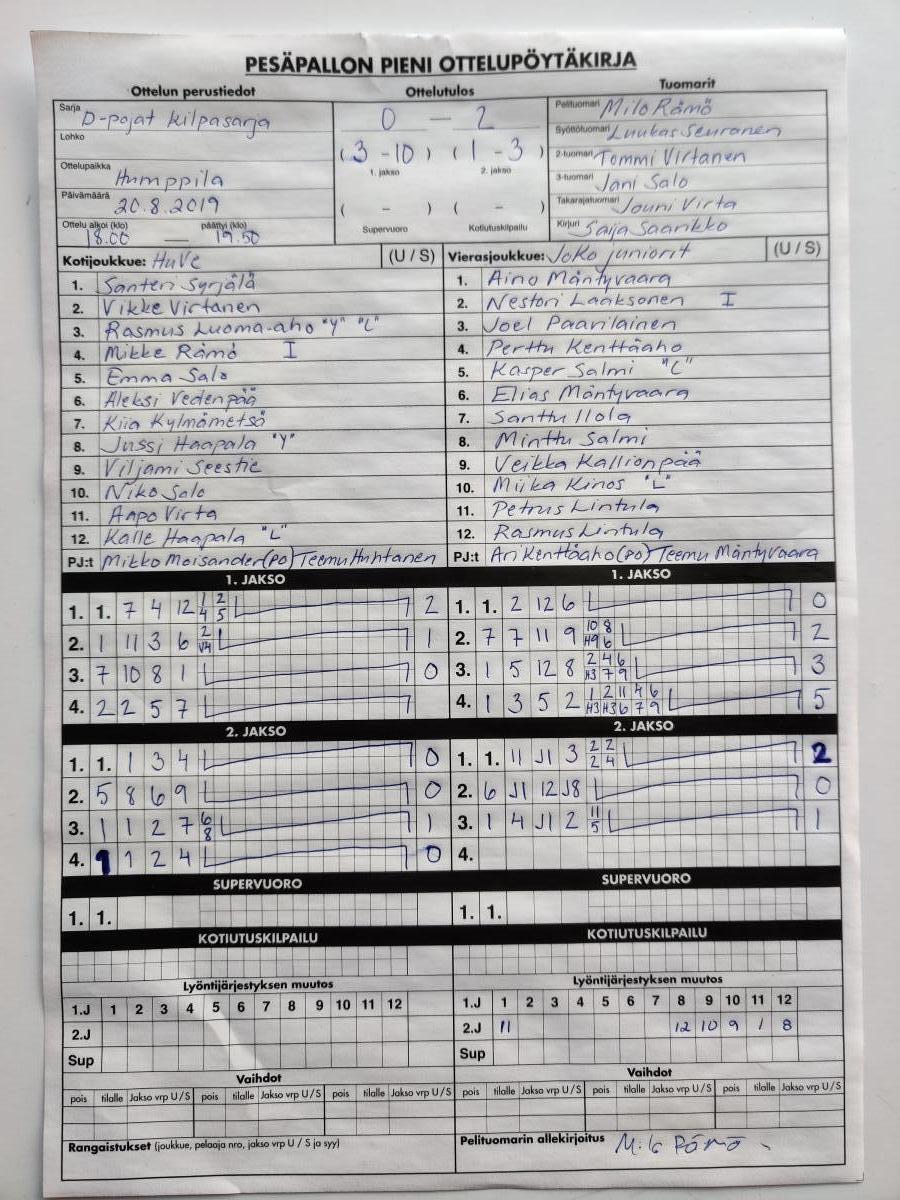 PESÄPALLON PIENI OTTELUPÖYTÄKIRJA
Ottelun perustiedot
Sarja D-pojat kilpasarja
Lohko
Ottelupaikka Humppila
Päivämäärä 20.8.2019
Ottelu alkoi (klo) päättyi (klo)
18.00 — 19.50
Ottelutulos
0 — 2
(3 - 10) (1 - 3)
1. jakso 2. jakso
( - ) ( - )
Supervuoro Kotiutuskilpailu
Tuomarit
Pelituomari Milo Rämö
Syöttötuomari Luukas Seuranen
2-tuomari Tommi Virtanen
3-tuomari Jani Salo
Takarajatuomari Jouni Virta
Kirjuri Saija Saarikko
Kotijoukkue: HuVe (U / S)
1. Santeri Syrjälä
2. Vikke Virtanen
3. Rasmus Luoma-aho "Y" "L"
4. Mikke Rämö I
5. Emma Salo
6. Aleksi Vedenpää
7. Kiia Kylmämetsä
8. Jussi Haapala "Y"
9. Viljami Seestie
10. Niko Salo
11. Aapo Virta
12. Kalle Haapala "L"
PJ:t Mikko Moisander(PO) Teemu Huhtanen
Vierasjoukkue: JoKo juniorit (U / S)
1. Aino Mäntyvaara
2. Nestori Laaksonen I
3. Joel Paavilainen
4. Perttu Kenttäaho
5. Kasper Salmi "L"
6. Elias Mäntyvaara
7. Santtu Ilola
8. Minttu Salmi
9. Veikka Kallionpää
10. Miika Kinos "L"
11. Petrus Lintula
12. Rasmus Lintula
PJ:t Ari Kenttäaho(PO) Teemu Mäntyvaara
1. JAKSO
1. 1. 7 4 12 1 2 2
4 5
2. 1 11 3 6 2 1
V4
3. 7 10 8 1 0
4. 2 2 5 7
2. JAKSO
1. 1. 1 3 4 0
2. 5 8 6 9 0
3. 1 1 2 7 6 1
8
4. 1 1 2 4 0
SUPERVUORO
1. 1.
KOTIUTUSKILPAILU
1. JAKSO
1. 1. 2 12 6 0
2. 7 7 11 9 10 8 2
H9 6
3. 1 5 12 8 2 4 6 3
H3 7 9
4. 1 3 5 2 1 2 11 4 6 5
H3 H3 6 7 9
2. JAKSO
1. 1. 11 J1 3 2 2 2
2 4
2. 6 J1 12 J8 0
3. 1 4 J1 2 11 1
5
4.
SUPERVUORO
1. 1.
KOTIUTUSKILPAILU
Lyöntijärjestyksen muutos
1.J 1 2 3 4 5 6 7 8 9 10 11 12
2.J
Sup
Vaihdot
pois tilalle Jakso vrp U/S pois tilalle Jakso vrp U/S pois tilalle Jakso vrp U/S
Rangaistukset (joukkue, pelaaja nro, jakso vrp U / S ja syy)
Lyöntijärjestyksen muutos
1.J 1 2 3 4 5 6 7 8 9 10 11 12
2.J 11 12 10 9 1 8
Sup
Vaihdot
pois tilalle Jakso vrp U/S pois tilalle Jakso vrp U/S pois tilalle Jakso vrp U/S
Pelituomarin allekirjoitus Milo Rämö